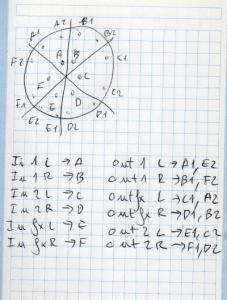 A2 B1
A1 B2
F2 A B C1
F C
F1 E D C2
E2 D1
E1 D2
In 1 L → A out 1 L → A1, E2
In 1 R → B out 1 R → B1, F2
In 2 L → C out fx L → C1, A2
In 2 R → D out fx R → D1, B2
In fx L → E out 2 L → E1, C2
In fx R → F out 2 R → F1, D2